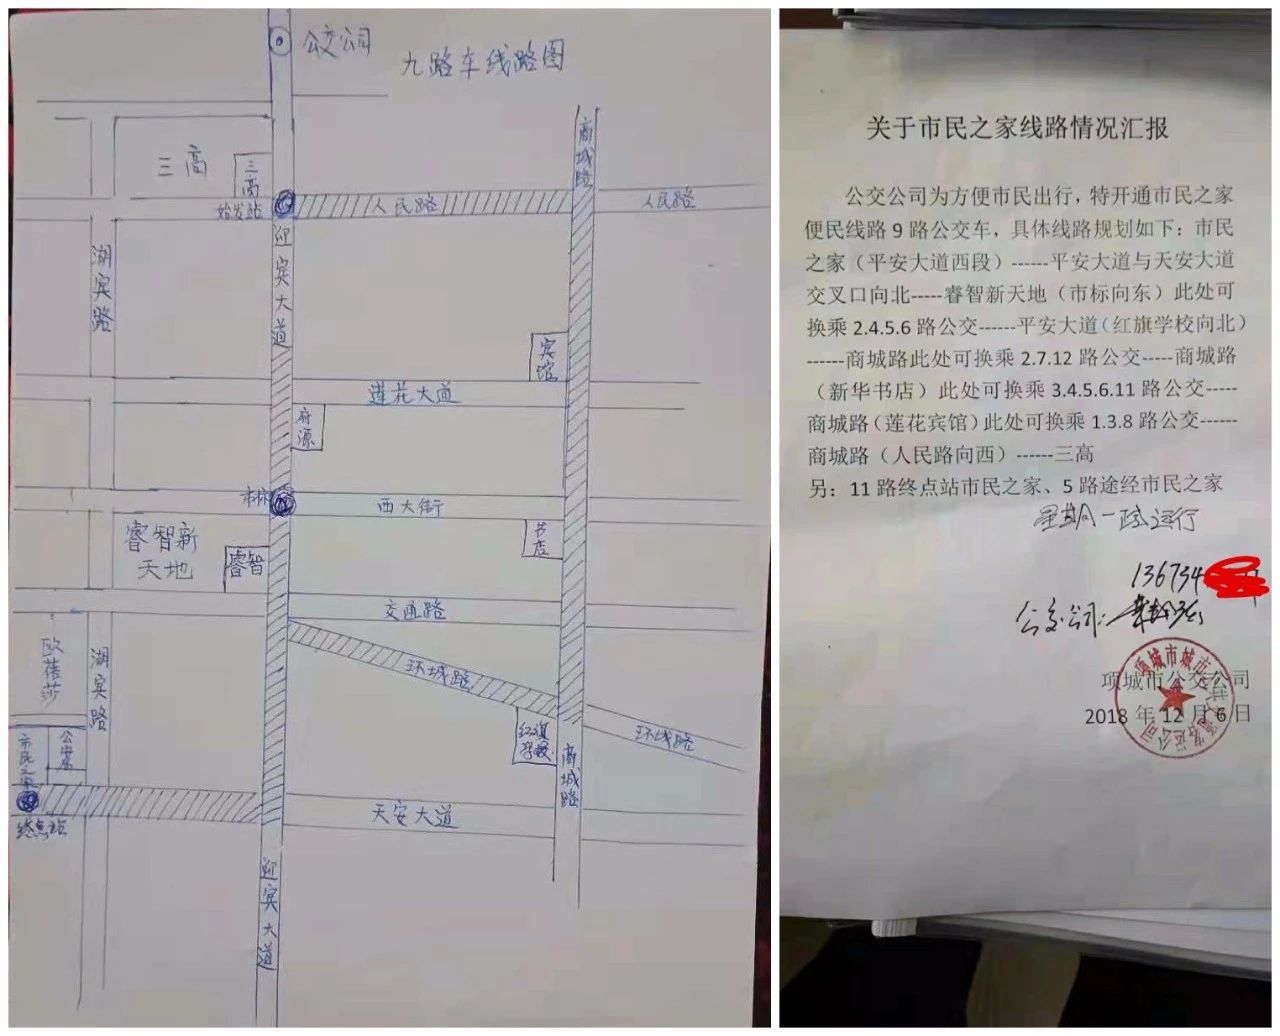 公交公司
九路车线路图
商城路
三高
三高
始发站
人民路
人民路
迎宾大道
湖宾路
宾馆
莲花大道
府源
市标
西大街
睿智新
天地
睿智
书店
交通路
欧蓓莎
湖宾路
环城路
红旗
学校
环线路
市民之家
公安局
商城路
终点站
天安大道
迎宾大道
关于市民之家线路情况汇报
公交公司为方便市民出行，特开通市民之家
便民线路 9 路公交车，具体线路规划如下：市民
之家（平安大道西段）------平安大道与天安大道
交叉口向北-----睿智新天地（市标向东）此处可
换乘 2.4.5.6 路公交------平安大道（红旗学校向北）
------商城路此处可换乘 2.7.12 路公交-----商城路
（新华书店）此处可换乘 3.4.5.6.11 路公交-----
商城路（莲花宾馆）此处可换乘 1.3.8 路公交------
商城路（人民路向西）------三高
另：11 路终点站市民之家、5 路途经市民之家
星期一试运行
136734
公交公司：
项城市公交公司
2018 年 12 月 6 日